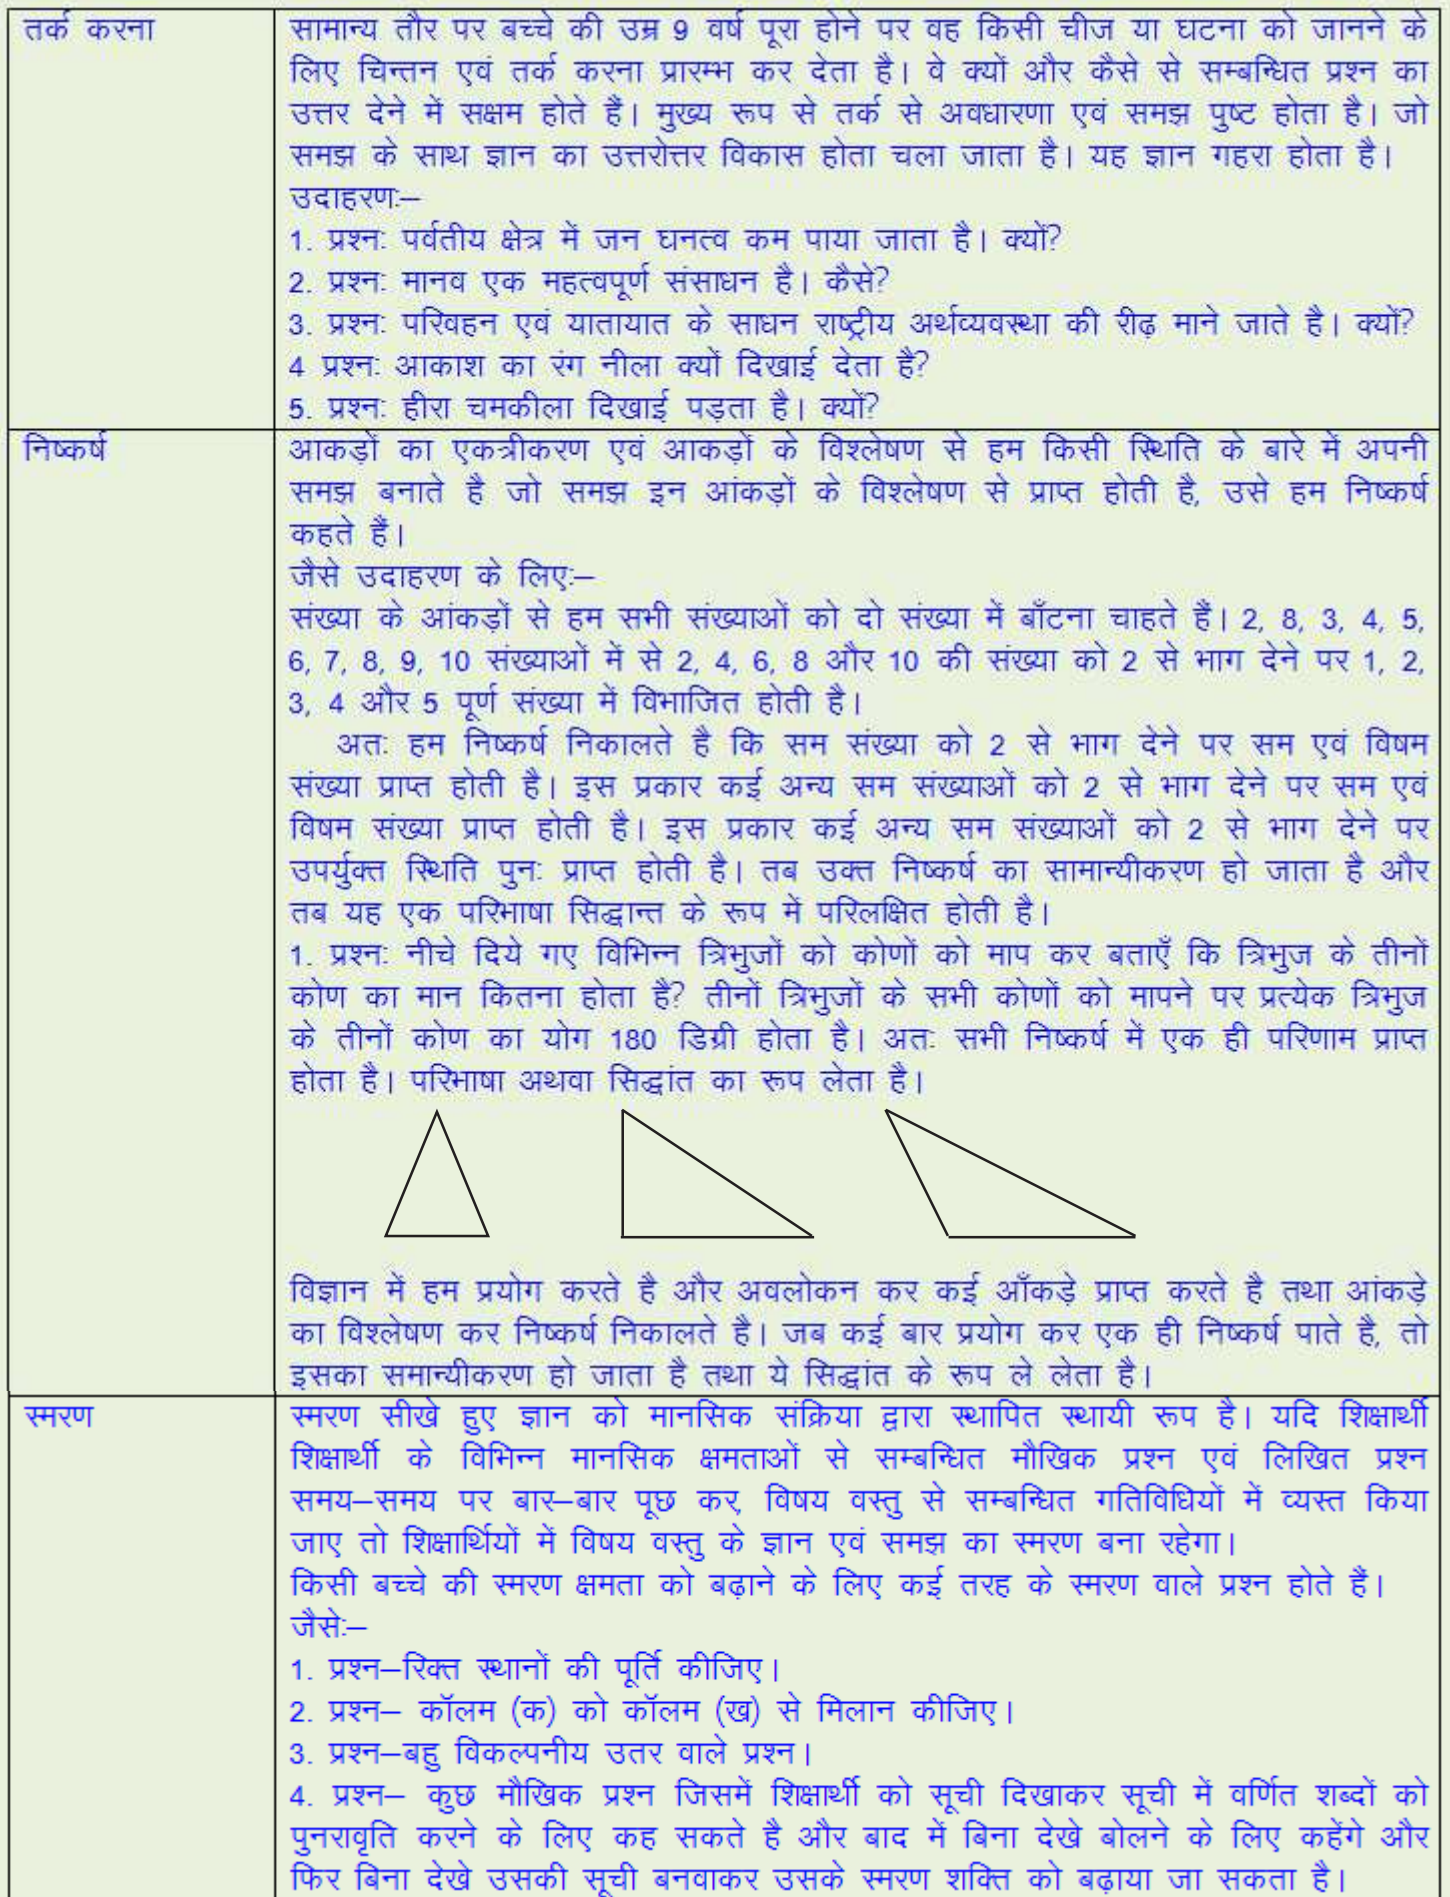 तर्क करना
सामान्य तौर पर बच्चे की उम्र 9 वर्ष पूरा होने पर वह किसी चीज या घटना को जानने के
लिए चिन्तन एवं तर्क करना प्रारम्भ कर देता है। वे क्यों और कैसे से सम्बन्धित प्रश्न का
उत्तर देने में सक्षम होते हैं। मुख्य रूप से तर्क से अवधारणा एवं समझ पुष्ट होता है। जो
समझ के साथ ज्ञान का उत्तरोत्तर विकास होता चला जाता है। यह ज्ञान गहरा होता है।
उदाहरणः–
1. प्रश्नः पर्वतीय क्षेत्र में जन घनत्व कम पाया जाता है। क्यों?
2. प्रश्नः मानव एक महत्वपूर्ण संसाधन है। कैसे?
3. प्रश्नः परिवहन एवं यातायात के साधन राष्ट्रीय अर्थव्यवस्था की रीढ़ माने जाते है। क्यों?
4 प्रश्नः आकाश का रंग नीला क्यों दिखाई देता है?
5. प्रश्नः हीरा चमकीला दिखाई पड़ता है। क्यों?
निष्कर्ष
आकड़ों का एकत्रीकरण एवं आकड़ों के विश्लेषण से हम किसी स्थिति के बारे में अपनी
समझ बनाते है जो समझ इन आंकड़ों के विश्लेषण से प्राप्त होती है, उसे हम निष्कर्ष
कहते हैं।
जैसे उदाहरण के लिएः–
संख्या के आंकड़ों से हम सभी संख्याओं को दो संख्या में बाँटना चाहते हैं। 2, 8, 3, 4, 5,
6, 7, 8, 9, 10 संख्याओं में से 2, 4, 6, 8 और 10 की संख्या को 2 से भाग देने पर 1, 2,
3, 4 और 5 पूर्ण संख्या में विभाजित होती है।
अतः हम निष्कर्ष निकालते है कि सम संख्या को 2 से भाग देने पर सम एवं विषम
संख्या प्राप्त होती है। इस प्रकार कई अन्य सम संख्याओं को 2 से भाग देने पर सम एवं
विषम संख्या प्राप्त होती है। इस प्रकार कई अन्य सम संख्याओं को 2 से भाग देने पर
उपर्युक्त स्थिति पुनः प्राप्त होती है। तब उक्त निष्कर्ष का सामान्यीकरण हो जाता है और
तब यह एक परिभाषा सिद्धान्त के रूप में परिलक्षित होती है।
1. प्रश्नः नीचे दिये गए विभिन्न त्रिभुजों को कोणों को माप कर बताएँ कि त्रिभुज के तीनों
कोण का मान कितना होता है? तीनों त्रिभुजों के सभी कोणों को मापने पर प्रत्येक त्रिभुज
के तीनों कोण का योग 180 डिग्री होता है। अतः सभी निष्कर्ष में एक ही परिणाम प्राप्त
होता है। परिभाषा अथवा सिद्धांत का रूप लेता है।
विज्ञान में हम प्रयोग करते है और अवलोकन कर कई आँकड़े प्राप्त करते है तथा आंकड़े
का विश्लेषण कर निष्कर्ष निकालते है। जब कई बार प्रयोग कर एक ही निष्कर्ष पाते है, तो
इसका समान्यीकरण हो जाता है तथा ये सिद्धांत के रूप ले लेता है।
स्मरण
स्मरण सीखे हुए ज्ञान को मानसिक संक्रिया द्वारा स्थापित स्थायी रूप है। यदि शिक्षार्थी
शिक्षार्थी के विभिन्न मानसिक क्षमताओं से सम्बन्धित मौखिक प्रश्न एवं लिखित प्रश्न
समय–समय पर बार–बार पूछ कर, विषय वस्तु से सम्बन्धित गतिविधियों में व्यस्त किया
जाए तो शिक्षार्थियों में विषय वस्तु के ज्ञान एवं समझ का स्मरण बना रहेगा।
किसी बच्चे की स्मरण क्षमता को बढ़ाने के लिए कई तरह के स्मरण वाले प्रश्न होते हैं।
जैसेः–
1. प्रश्न–रिक्त स्थानों की पूर्ति कीजिए।
2. प्रश्न– कॉलम (क) को कॉलम (ख) से मिलान कीजिए।
3. प्रश्न–बहु विकल्पनीय उतर वाले प्रश्न।
4. प्रश्न– कुछ मौखिक प्रश्न जिसमें शिक्षार्थी को सूची दिखाकर सूची में वर्णित शब्दों को
पुनरावृति करने के लिए कह सकते है और बाद में बिना देखे बोलने के लिए कहेंगे और
फिर बिना देखे उसकी सूची बनवाकर उसके स्मरण शक्ति को बढ़ाया जा सकता है।